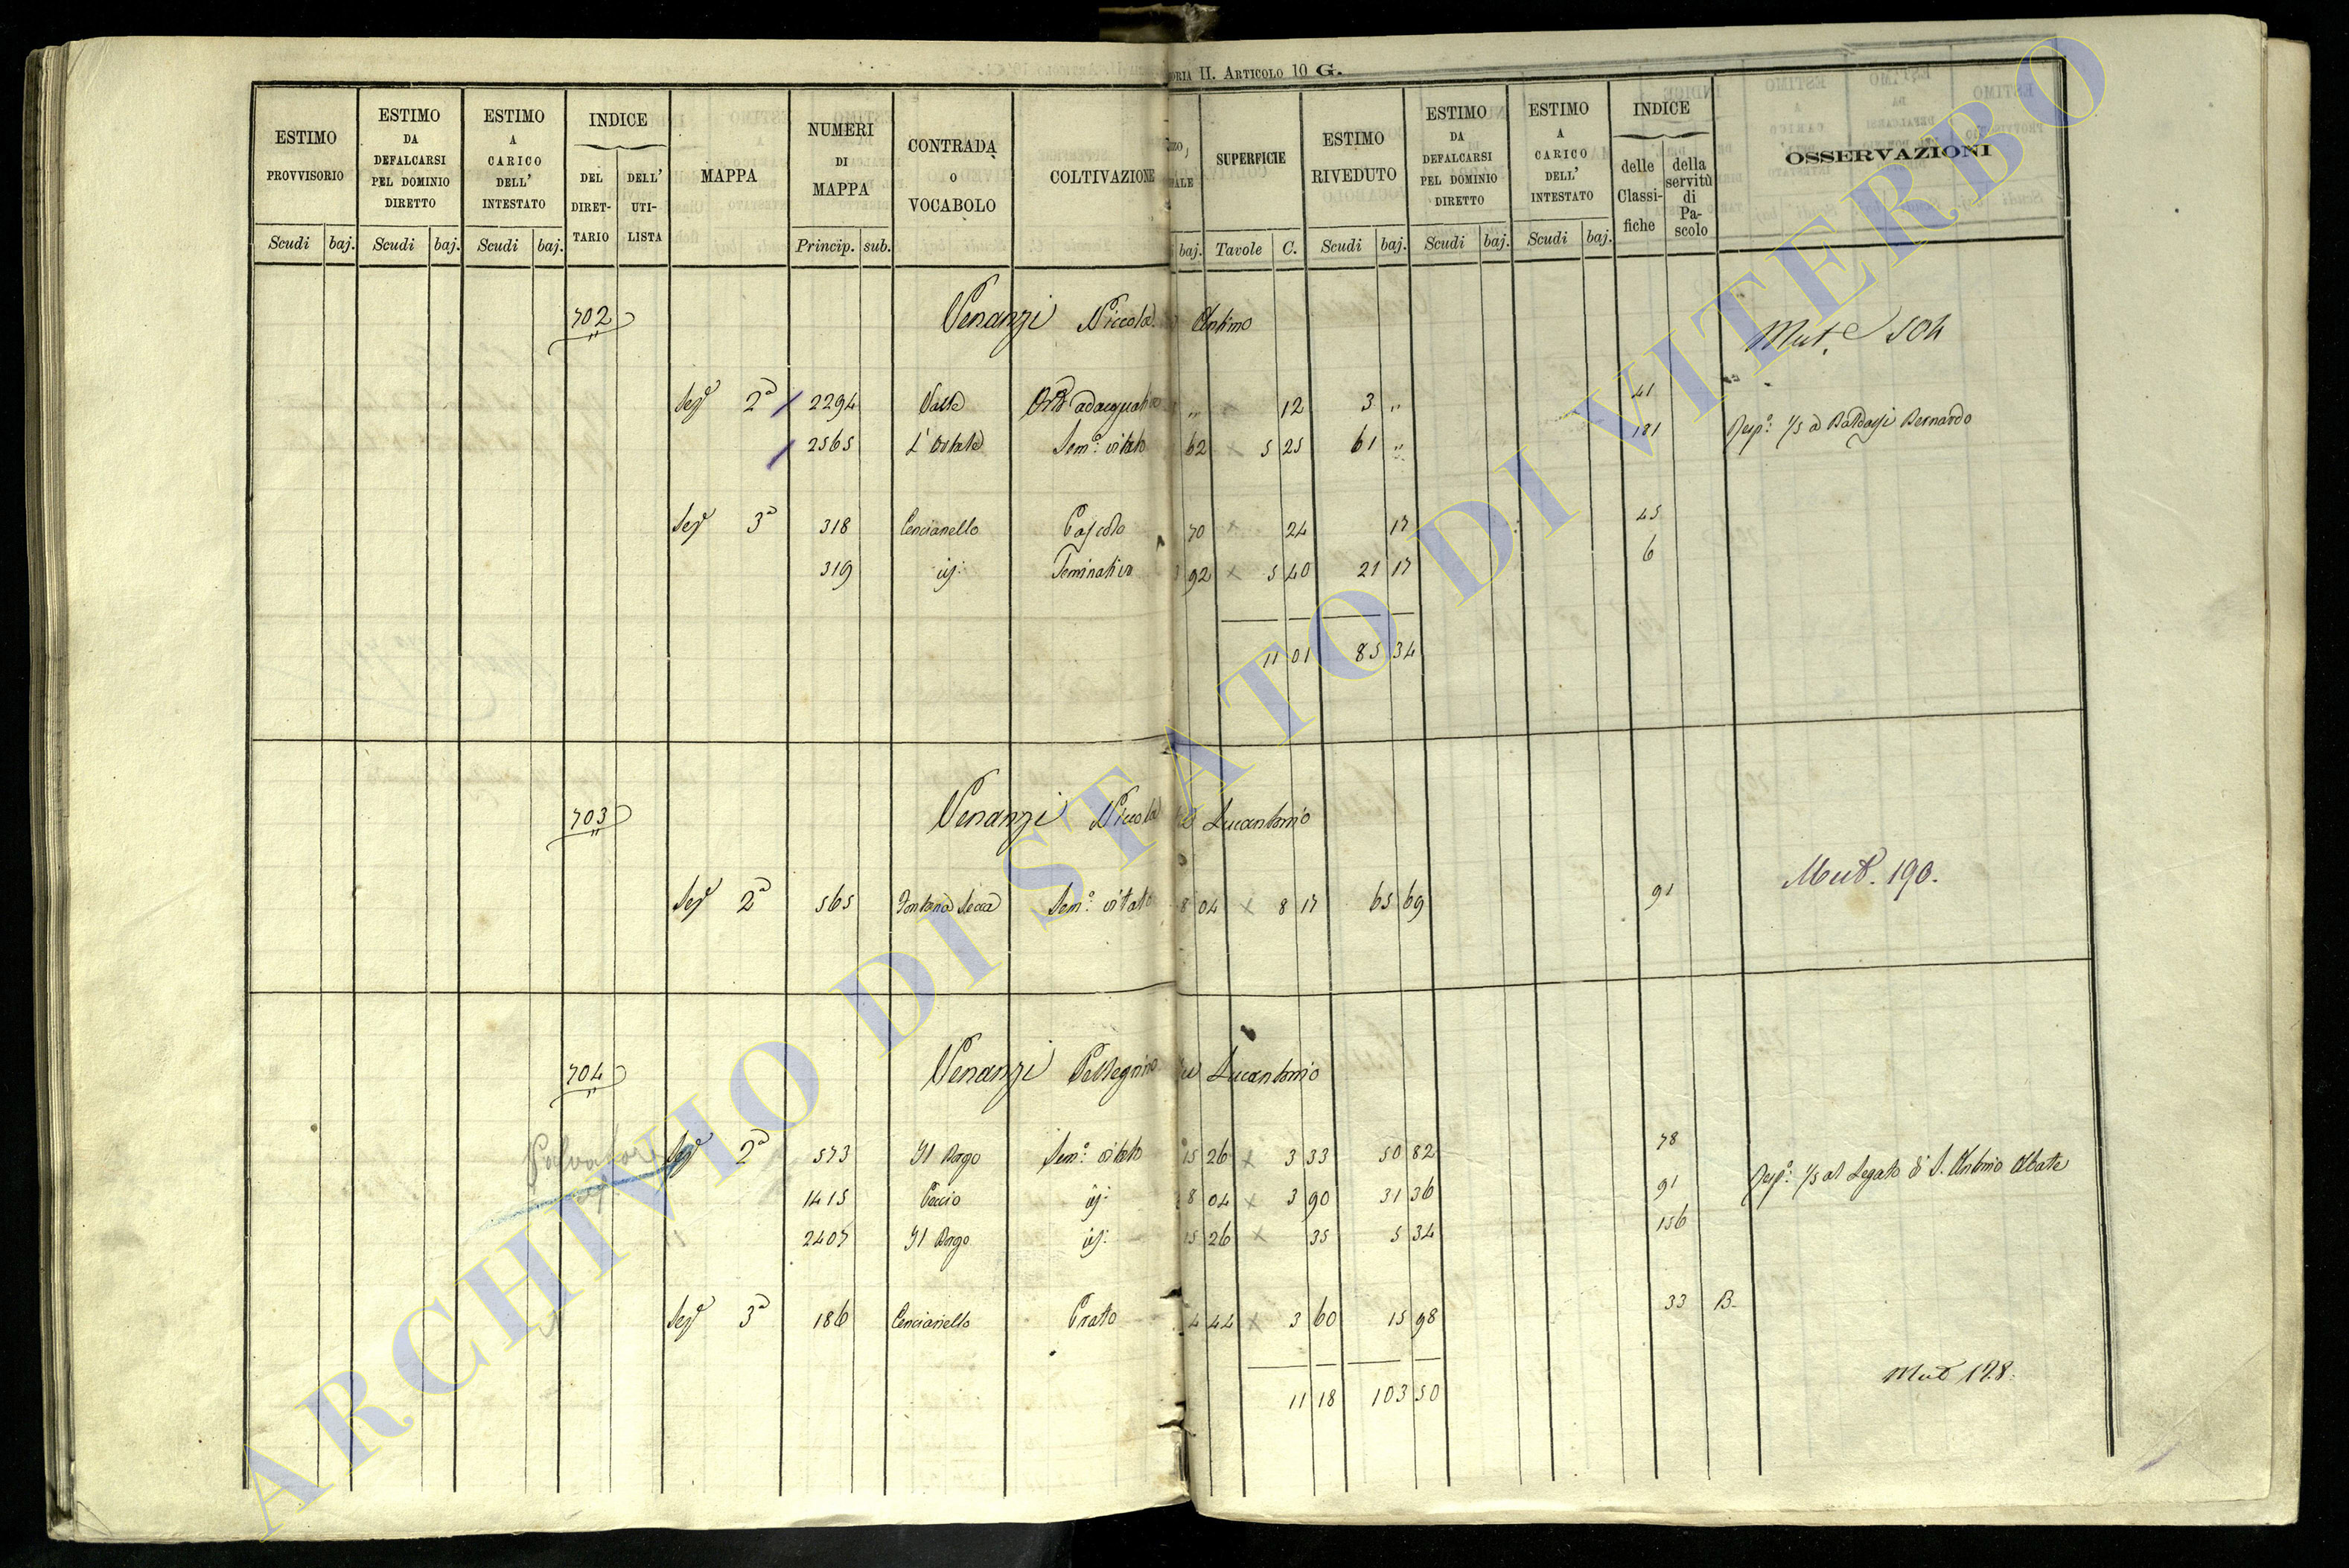 ORIA II. ARTICOLO 10 G.
ESTIMO PROVVISORIO
Scudi baj.
ESTIMO DA DEFALCARSI PEL DOMINIO DIRETTO
Scudi baj.
ESTIMO A CARICO DELL' INTESTATO
Scudi baj.
INDICE
DEL DIRET-TARIO
DELL' UTI-LISTA
MAPPA
NUMERI DI MAPPA
Princip. sub.
CONTRADA O VOCABOLO
COLTIVAZIONE
baj.
SUPERFICIE
Tavole C.
ESTIMO RIVEDUTO
Scudi baj.
ESTIMO DA DEFALCARSI PEL DOMINIO DIRETTO
Scudi baj.
ESTIMO A CARICO DELL' INTESTATO
Scudi baj.
INDICE
delle Classi-fiche
della servitù di Pa-scolo
OSSERVAZIONI
702 Venanzi Niccola Antimo
Mut. 504
2ª 2294 Valle 12 3 " 41
2565 Sem.º vitato 62 5 25 61 " 181 Resp.º 1/5 a Bernardo
3ª 318 Cencianello Pascolo 70 24 17 45
319 Seminativo 92 5 40 21 17 6
11 01 85 34
703 Venanzi Niccola Lucantonio
2ª 565 Fontana Secca Sem.º vitato 8 04 8 17 65 69 91
Mut. 190.
704 Venanzi Pellegrino Lucantonio
Salvatore
2ª 573 Il Sem.º vitato 15 26 3 33 50 82 78
1415 8 04 3 90 31 36 91 Resp.º 1/5 al Legato di S. Antonio Abate
2407 Il 15 26 35 5 34 156
3ª 186 Cencianello Prato 4 44 3 60 15 98 33 B.
11 18 103 50
Mut 178.
ARCHIVIO DI STATO DI VITERBO